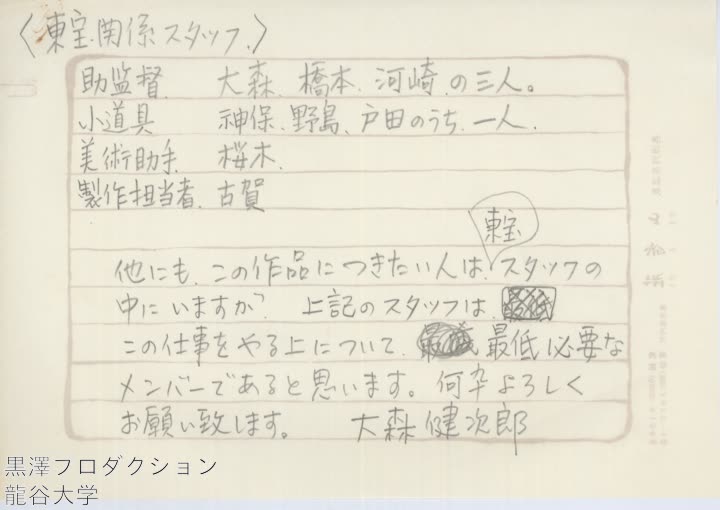 〈東宝関係スタッフ.〉
助監督 大森、橋本、河崎、の三人。
小道具 神保、野島、戸田のうち、一人.
美術助手 桜木.
製作担当者. 古賀
他にも、この作品につきたい人は、東宝スタッフの
中にいますが、上記のスタッフは、
この仕事をやる上について、最低必要な
メンバーであると思います。何卒よろしく
お願い致します。 大森健次郎
黒澤フロダクション
龍谷大学